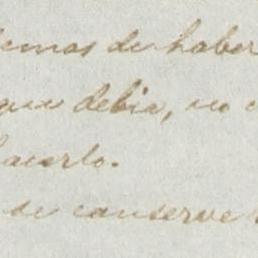 demas de haber
que debia, no
hacerlo.
se conserve